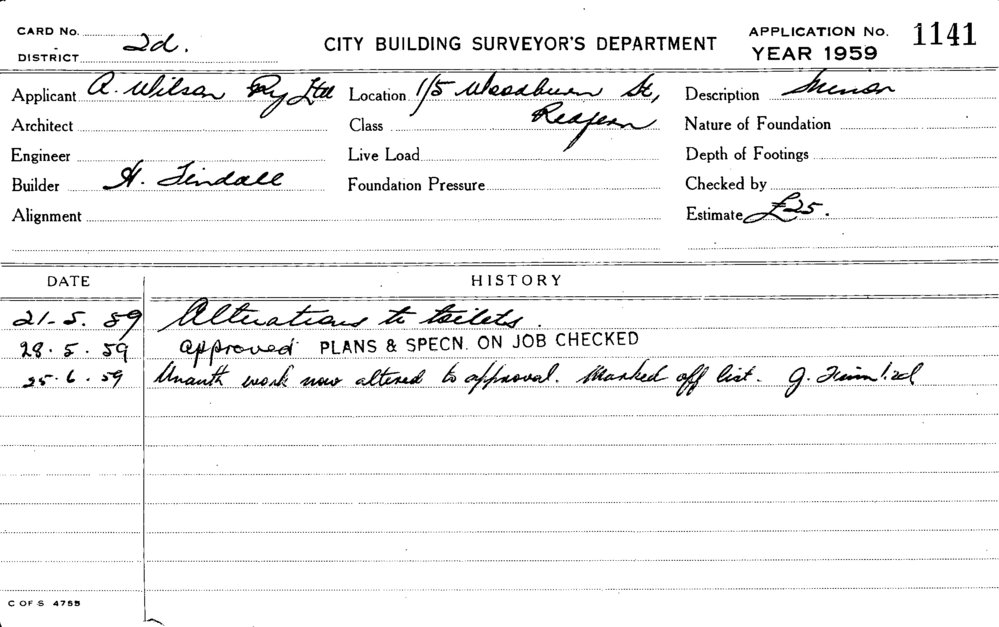 CARD No.
2d.
DISTRICT
CITY BUILDING SURVEYOR'S DEPARTMENT
APPLICATION No. 1141
YEAR 1959
Applicant A. Wilson Pty Ltd Location 1/5 Woodburn St, Description Minor
Architect Class Redfern Nature of Foundation
Engineer Live Load Depth of Footings
Builder H. Tindall Foundation Pressure Checked by
Alignment Estimate £25.
DATE HISTORY
21-5.59 Alterations to toilets.
28.5.59 approved PLANS & SPECN. ON JOB CHECKED
25.6.59 Unauth work now altered to approval. Marked off list. J.
C OF S 4755